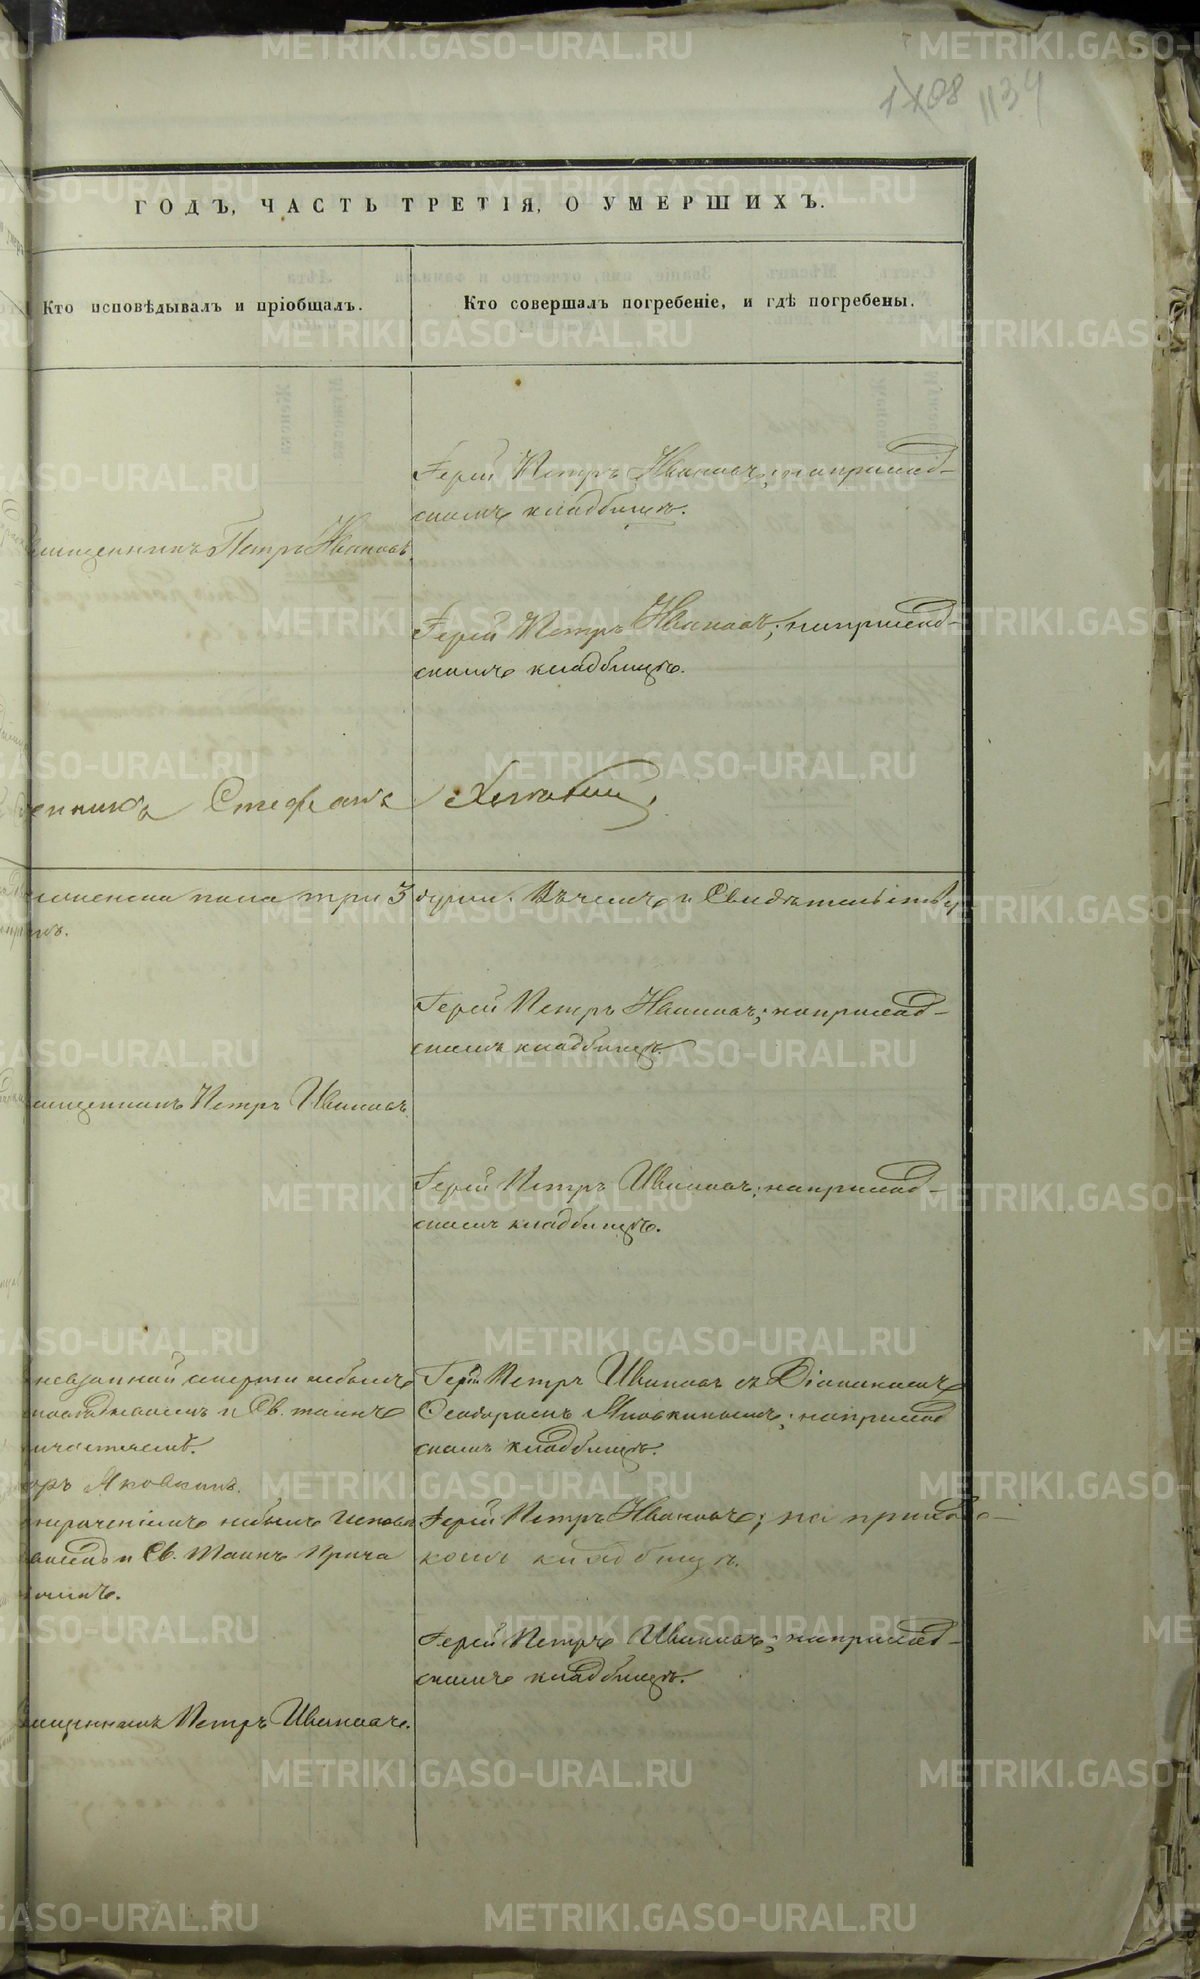 1108 1134
ГОДЪ, ЧАСТЬ ТРЕТІЯ, О УМЕРШИХЪ.
Кто исповѣдывалъ и пріобщалъ.
Кто совершалъ погребеніе, и гдѣ погребены.
Іерей Петръ Ивановъ; наприход-
скомъ кладбищѣ.
священникъ Петръ Ивановъ
Іерей Петръ Ивановъ; наприход-
скомъ кладбищѣ.
енникъ Стефанъ
три 3 души. Въчемъ и Свидѣтельству
Іерей Петръ Ивановъ; наприход-
скомъ кладбищѣ.
священникъ Петръ Ивановъ
Іерей Петръ Ивановъ; наприход-
скомъ кладбищѣ.
невзапной смерти небылъ
и Св. таинъ
ичастенъ.
оръ Яковкинъ.
Іерей Петръ Ивановъ съ Діакономъ
Ѳеодоромъ Яковкинымъ; наприход
скомъ кладбищѣ.
небылъ Исповѣ
и Св. Таинъ Прича
Іерей Петръ Ивановъ; на приход-
скомъ кладбищѣ.
Іерей Петръ Ивановъ; наприход-
скомъ кладбищѣ.
священникъ Петръ Ивановъ.
METRIKI.GASO-URAL.RU